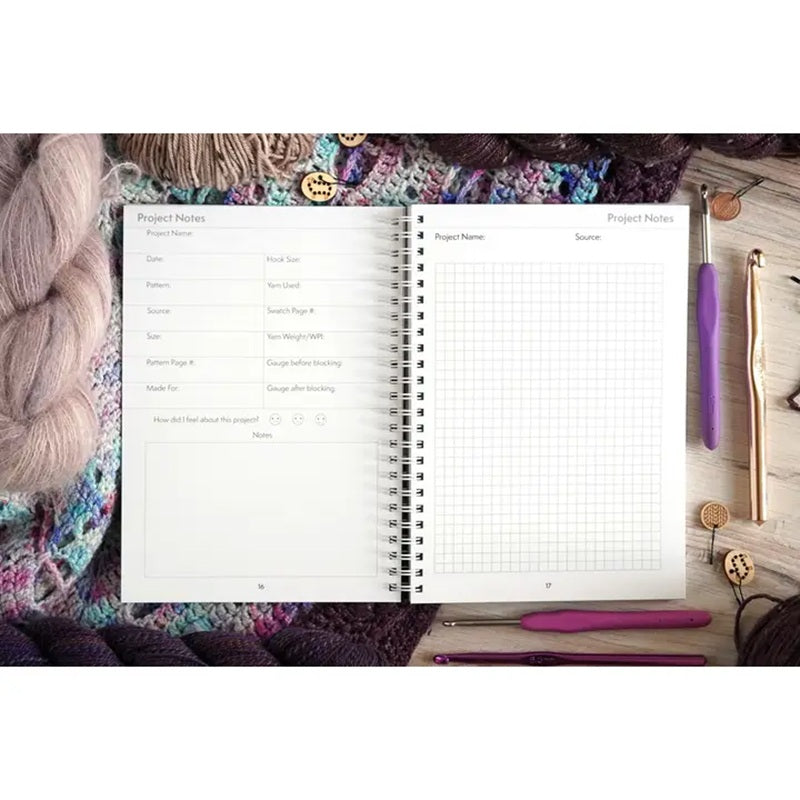 Project Notes
Project Name:
Date:
Hook Size:
Pattern:
Yarn Used:
Source:
Swatch Page #:
Size:
Yarn Weight/WPI:
Pattern Page #:
Gauge before blocking:
Made For:
Gauge after blocking:
How did I feel about this project?
Notes
16
Project Notes
Project Name: Source:
17